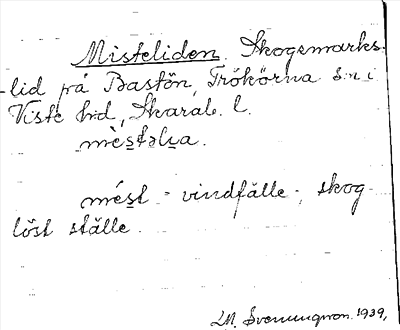 Misteliden. Skogsmarks-
lid på Bastön, Trökörna sn i
Viste hd, Skarab. l.
mèstəlɩa.
mést = vindfälle-, skog-
löst ställe.
M. Svenungson. 1939,